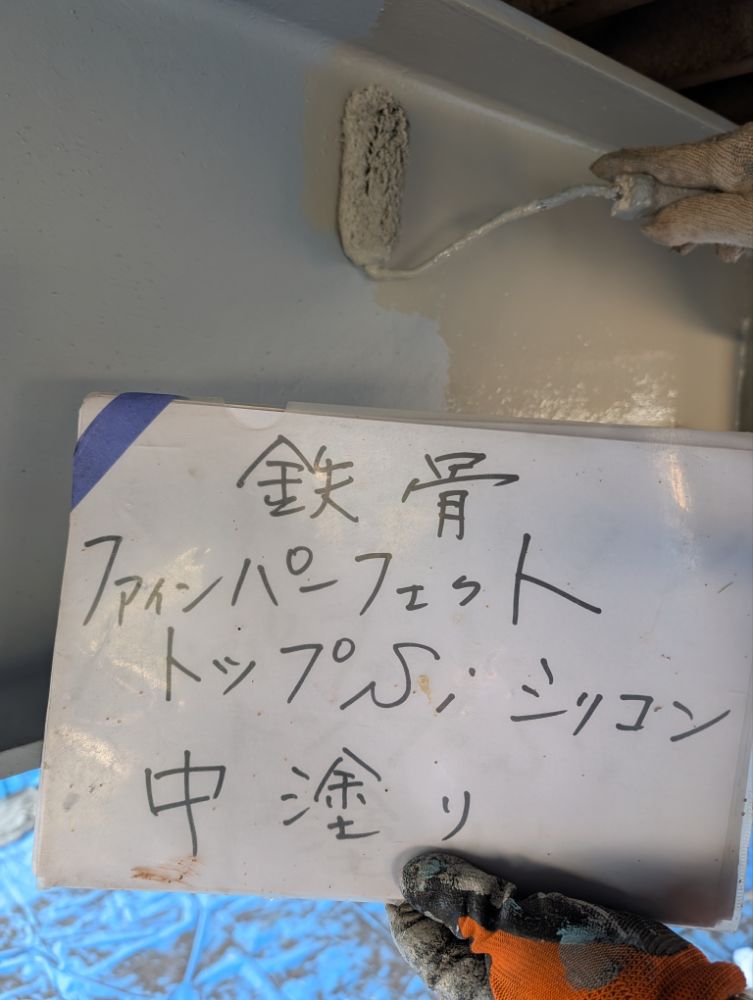 鉄骨
ファインパーフェクト
トップSi シリコン
中塗り